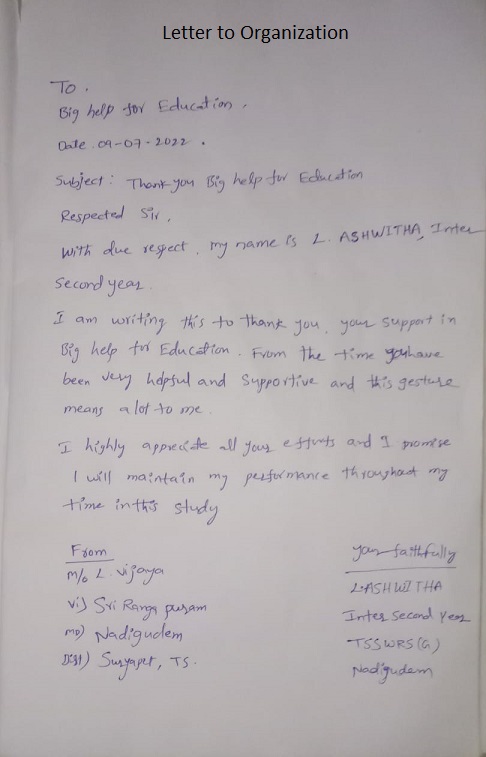 Letter to Organization
To.
Big help for Education.
Date. 09-07-2022.
Subject: Thank you Big help for Education
Respected Sir,
With due respect. my name is L. ASHWITHA, Inter
Second year.
I am writing this to thank you. your support in
Big help for Education. From the time you have
been very helpful and Supportive and this gesture
means a lot to me.
I highly appreciate all your efforts and I promise
I will maintain my performance throughout my
time in this study
From
M/o L. Vijaya
Vi) Sri Ranga puram
MD) Nadigudem
Dist) Suryapet, TS.
your faithfully
L. ASHWITHA
Inter Second Year
TSSWRS(G)
Nadigudem